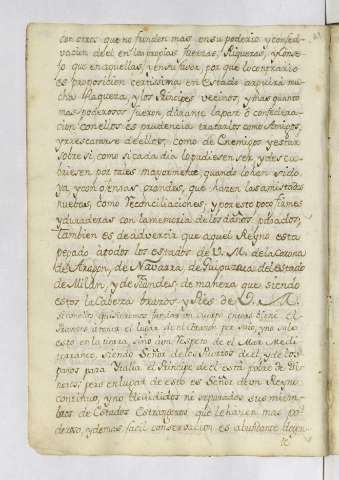 con otros que no funden mas en su poderio y conser-
vacion de el en las propias fuerzas, Riquezas, y Conse-
jo que en aquellas, y en su favor, por que lo contrario
es proposicion certissima en Estado arguirá mu-
cha flaqueza, y los Principes vecinos, y mas quanto
mas poderosos fueron, durante la paz ò confedera-
cion con ellos es prudencia tratarlos como Amigos,
y recatarse de ellos, como de Enemigos y estar
sobre si, como si cada dia lo pudiesen ser, y descu-
briesen por tales mayormente quando lo han sido
ya y con ofensas grandes, que hazen las amistades
nuebas, como reconciliaciones, y por esto poco firmes
y duraderas con la memoria de los daños pasados,
tambien es de advertir que aquel Reyno esta
pegado à todos los estados de V. M. de la Corona
de Aragon, de Navarra de Guipuzcua del estado
de Milan, y de Flandes, de manera que siendo
estos la Cabeza brazos y Pies de V. M.
si con ellos quisieremos juntar un cuerpo
el lugar y no solo
esto en la tierra, sino con respeto de el Mar Medi-
terraneo, siendo Señor de los Puertos de el y de los
pasos para Italia. el Principe de el está pobre de Di-
neros; pero en lugar de esto es Señor de un Reyno
continuo, y no dividido ni separados sus miem-
bros de Estados Estrangeros, que le hazen mas po-
deroso, y demas facil conservacion es abundante de